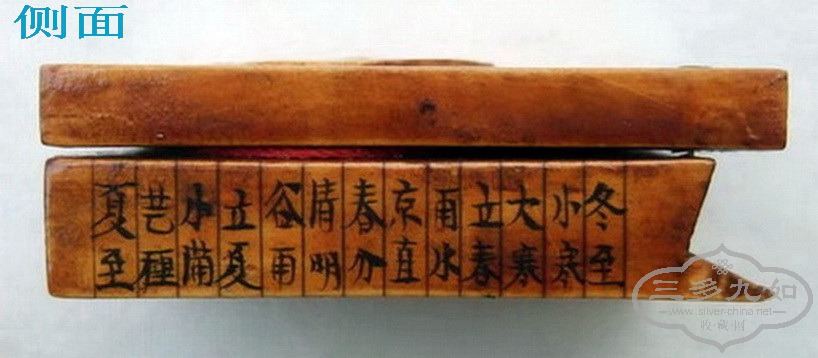 侧面
冬至
小寒
大寒
立春
雨水
京直
春分
清明
谷雨
立夏
小
芒
夏至
三多九如
www.silver-china.net
收·藏·网